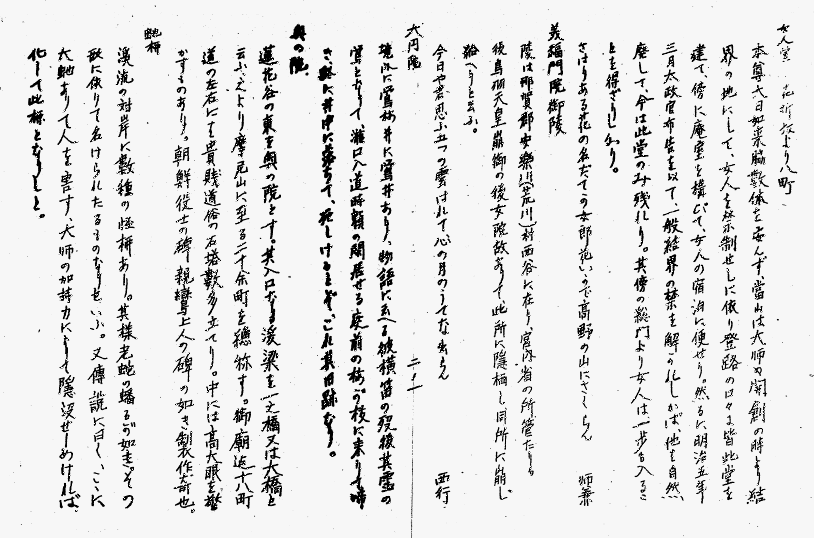 女人堂 花折坂より八町
本尊大日如来脇数体を安んず、當山は大師の開創の時より結
界の地にして、女人を禁制せしに依り登路の口々に皆此堂を
建て、傍に庵室を構ひて、女人の宿泊に便せり。然るに明治五年
三月太政官布告を以て、一般結界の禁を解かれしかば、他は自然
廃して、今は此堂のみ残れり。其傍の総門より女人は、一歩も入るこ
とを得ざりしなり。
さはりある花の名だての女郎花いので高野の山にさくらん 師兼
美福門院御陵
陵は那賀郡安樂川(荒川)村西谷に在り、宮内省の所管たり
後鳥羽天皇崩御の後女院故ありて、此所に隠栖し同所に崩じ
給へりと云ふ。
今日や君思ふ五つの雲はれて心の月のうてな出らん 西行
二ノ一
大円院
境内に鶯梅井に鶯井あり、物語に云へる彼横笛の歿後其霊の
鶯となりて、瀧口入道時頼の閑居せる庭前の梅が枝に来りて啼
き、終に井中に落ちて、死しけるとぞ、これ其旧跡なり。
奥の院
蓮花谷の東を奥の院とす。其入口なる渓梁を一之橋又は大橋と
云ふ、之より摩尼山に至る二十余町を總称す。御廟迄十八町
道の左右にて貴賤道俗の石塔數多立てり。中には高大眼を驚
かすものあり。朝鮮役士の碑、親鸞上人の碑の如き製作奇也。
蛇柳
渓流の対岸に數種の怪柳あり。其様老蛇の蟠るが如き。その
形に依りて名けられたるものなりといふ。又傳説に曰く、ここに
大蛇ありて人を害す、大師の加持力によりて隠没せしめければ、
化して此柳となりしと。